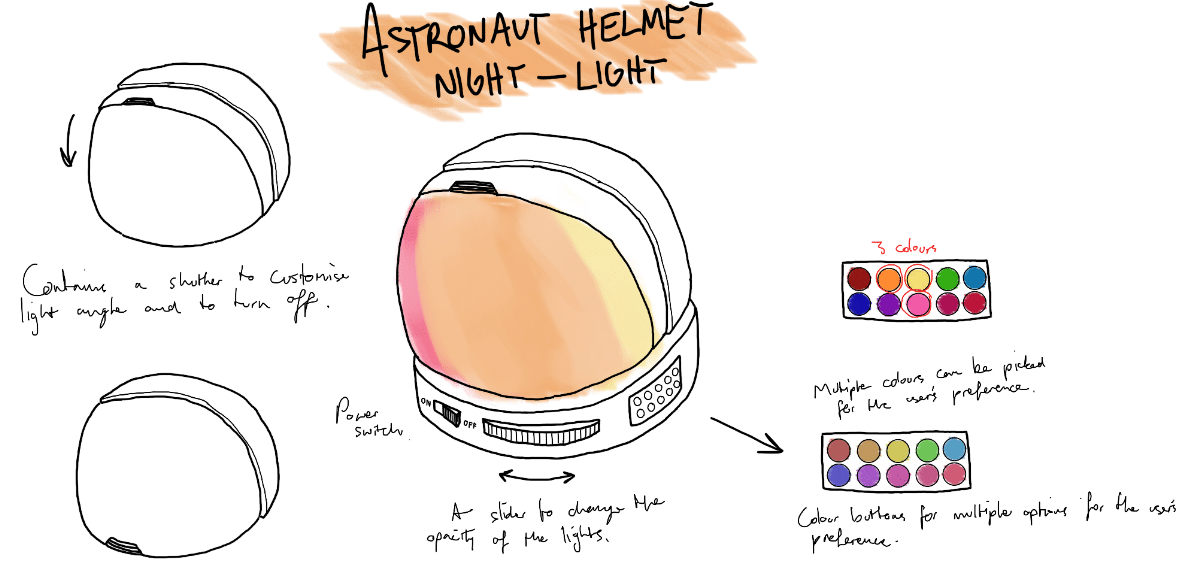 ASTRONAUT HELMET
NIGHT-LIGHT
Contains a shutter to customise
light angle and to turn off.
3 colours
Multiple colours can be picked
for the user's preference.
Power
switch.
ON
OFF
A slider to change the
opacity of the lights.
Colour buttons for multiple options for the user's
preference.